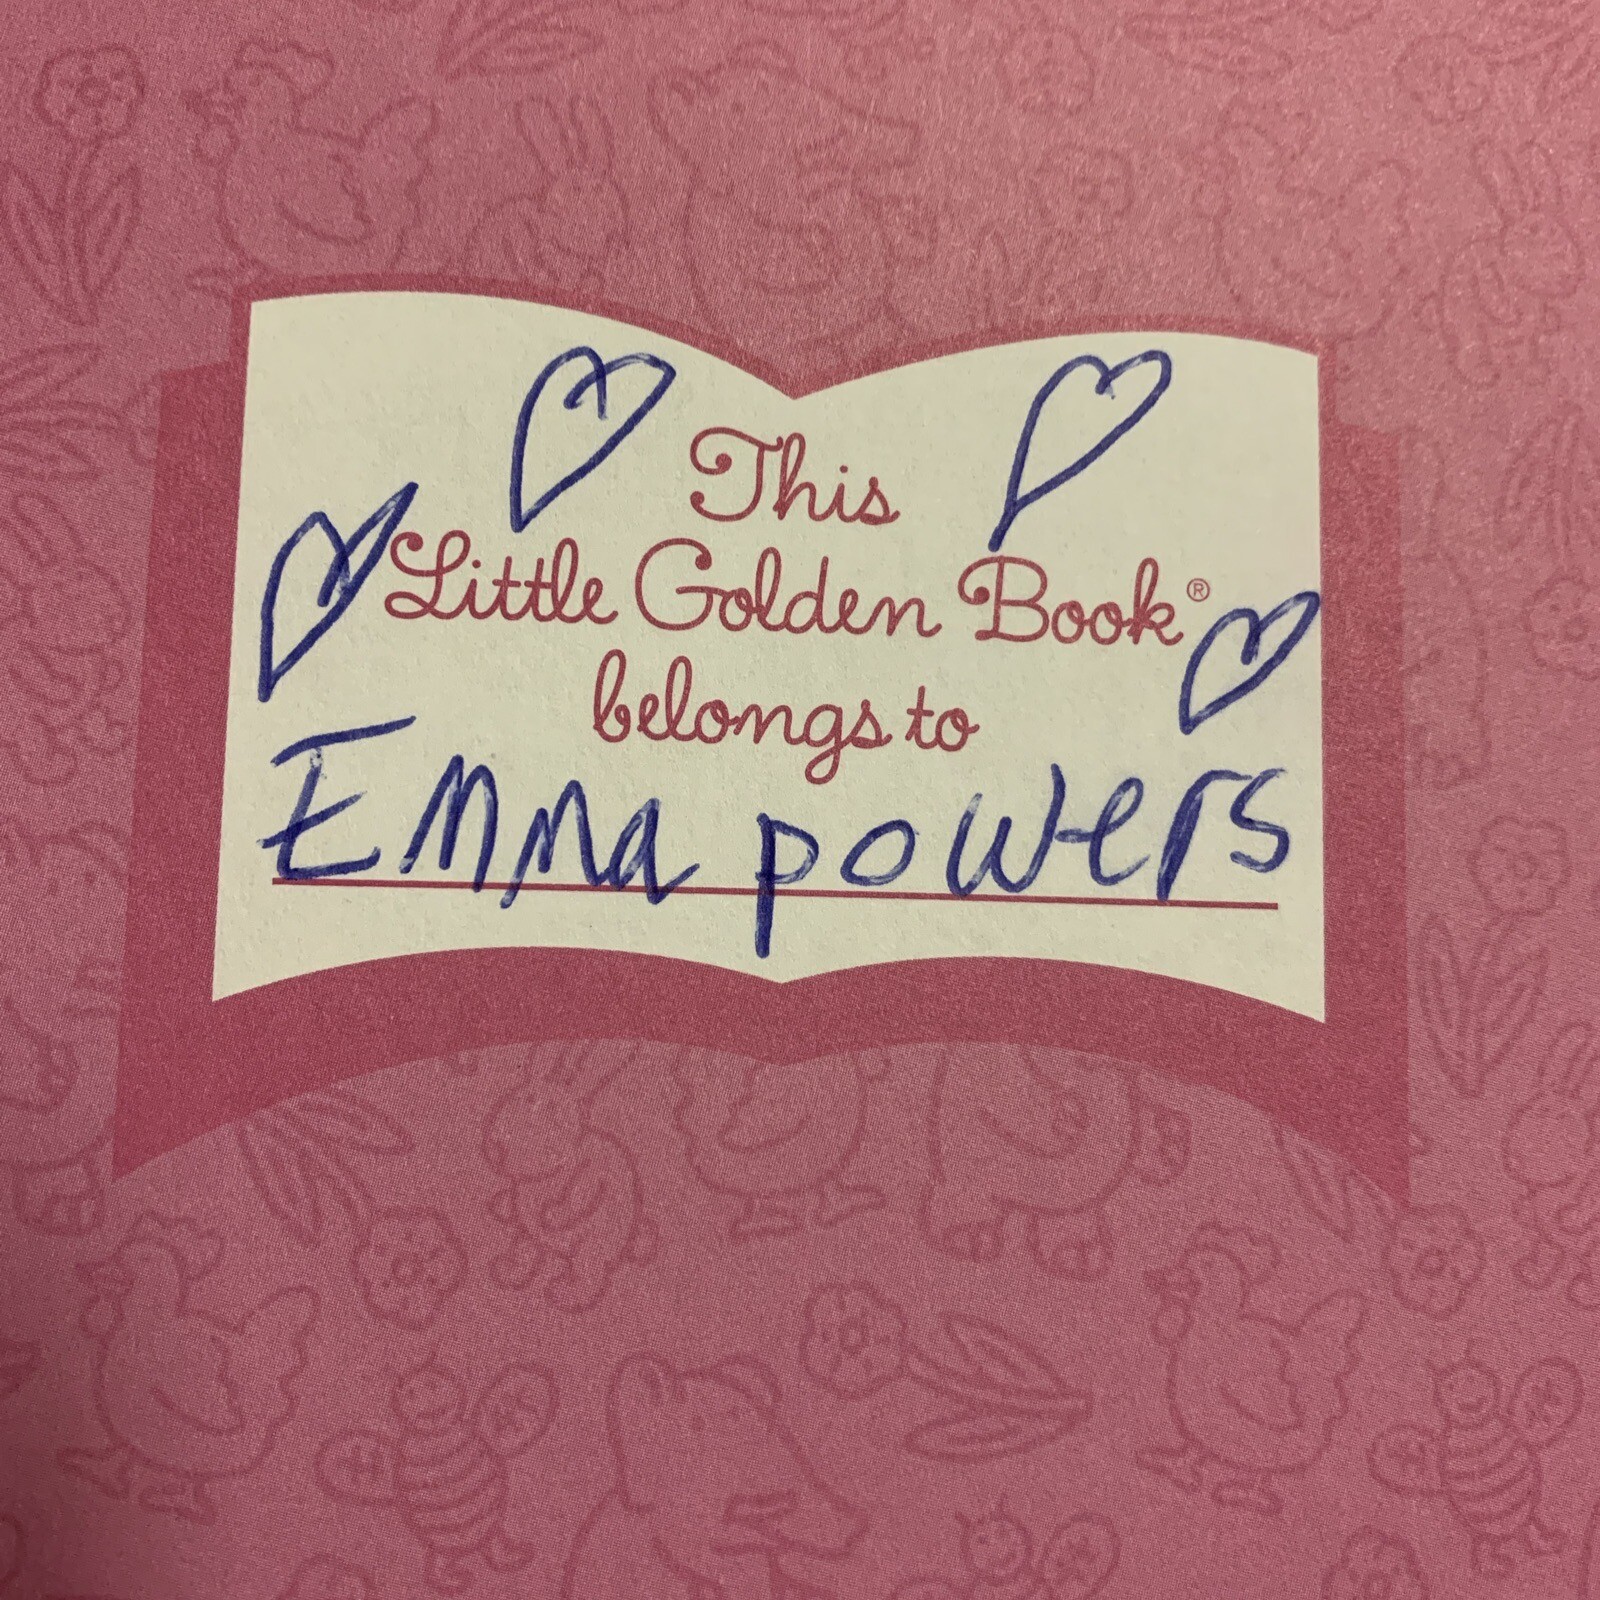 This
Little Golden Book®
belongs to
Emma powers